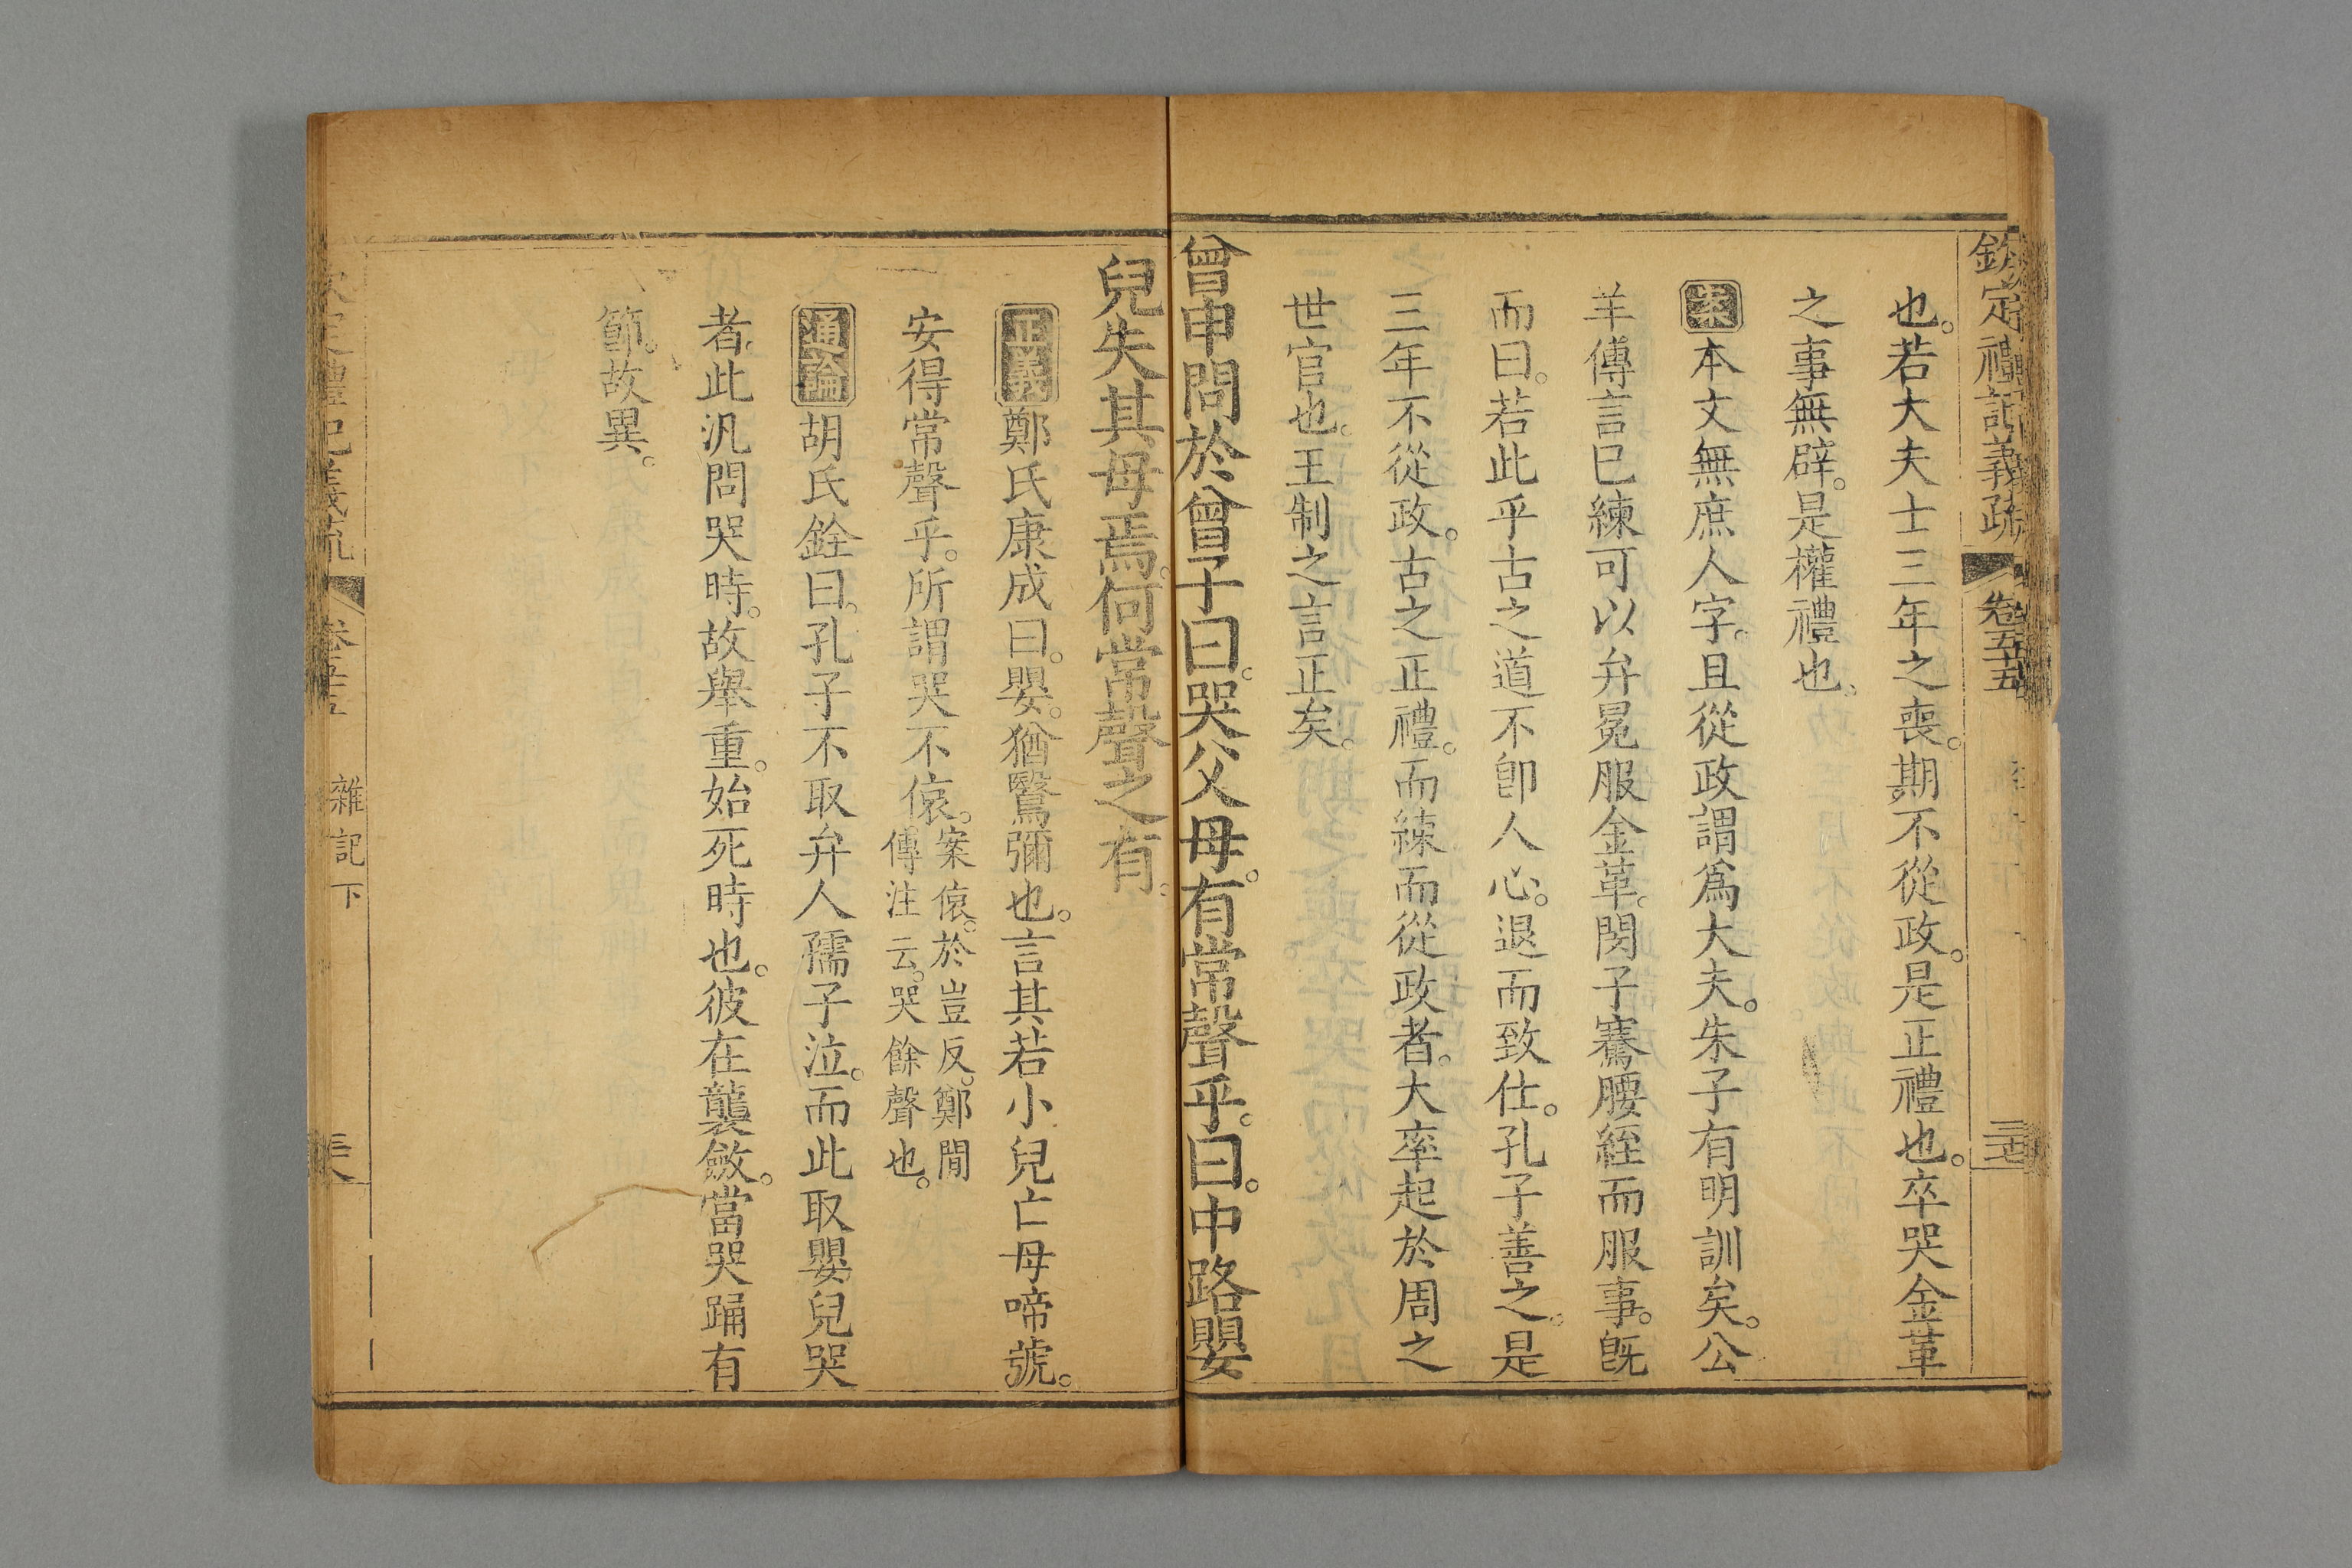 欽定禮記義疏 卷五十五
也。若大夫士三年之喪。期不從政。是正禮也。卒哭金革
之事無辟。是權禮也。
案本文無庶人字。且從政謂爲大夫。朱子有明訓矣。公
羊傳言已練可以弁冕服金革。閔子騫腰絰而服事。旣
而曰。若此乎古之道不卽人心。退而致仕。孔子善之。是
三年不從政。古之正禮。而練而從政者。大率起於周之
世官也。王制之言正矣。
曾申問於曾子曰。哭父母。有常聲乎。曰。中路嬰
兒失其母焉。何常聲之有。
正義鄭氏康成曰。嬰。猶鷖彌也。言其若小兒亡母啼號。
安得常聲乎。所謂哭不偯。案偯。於豈反。鄭閒
傳注云。哭餘聲也。
通論胡氏銓曰。孔子不取弁人孺子泣。而此取嬰兒哭
者。此汎問哭時。故舉重。始死時也。彼在襲斂。當哭踊有
節。故異。
禮記義疏 雜記下